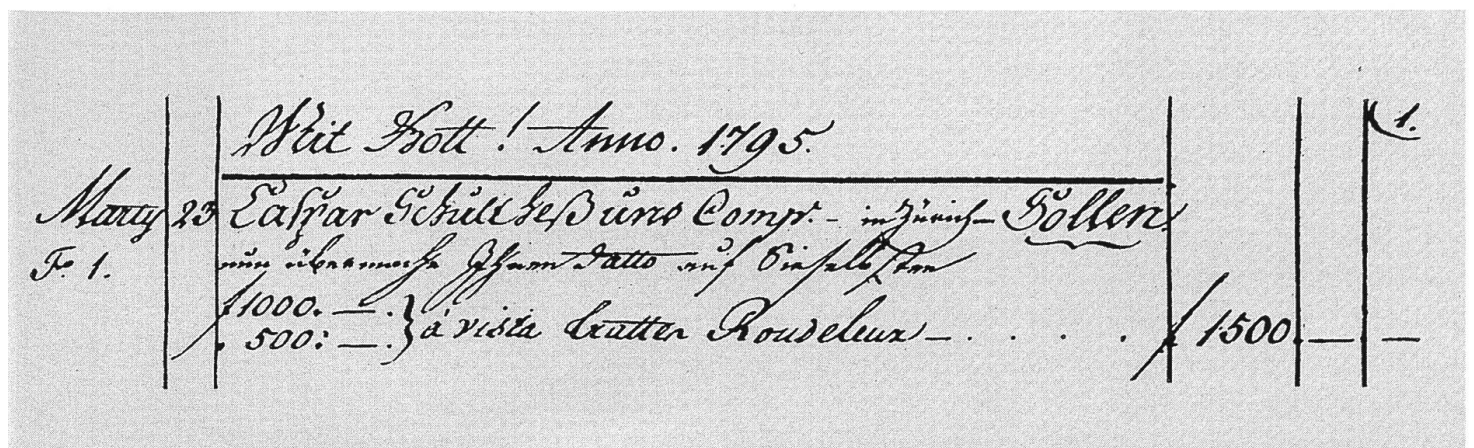 Mit Gott! Anno. 1795. 1.
Marty 23 Caspar Schultheß und Comp. - in Zürich - Sollen
Fo 1. nun übermache Ihnen Datto auf Sieselbsten
f 1000. —.
" 500: —. } à vista tratten Roudeleux — . . . . f 1500. — —